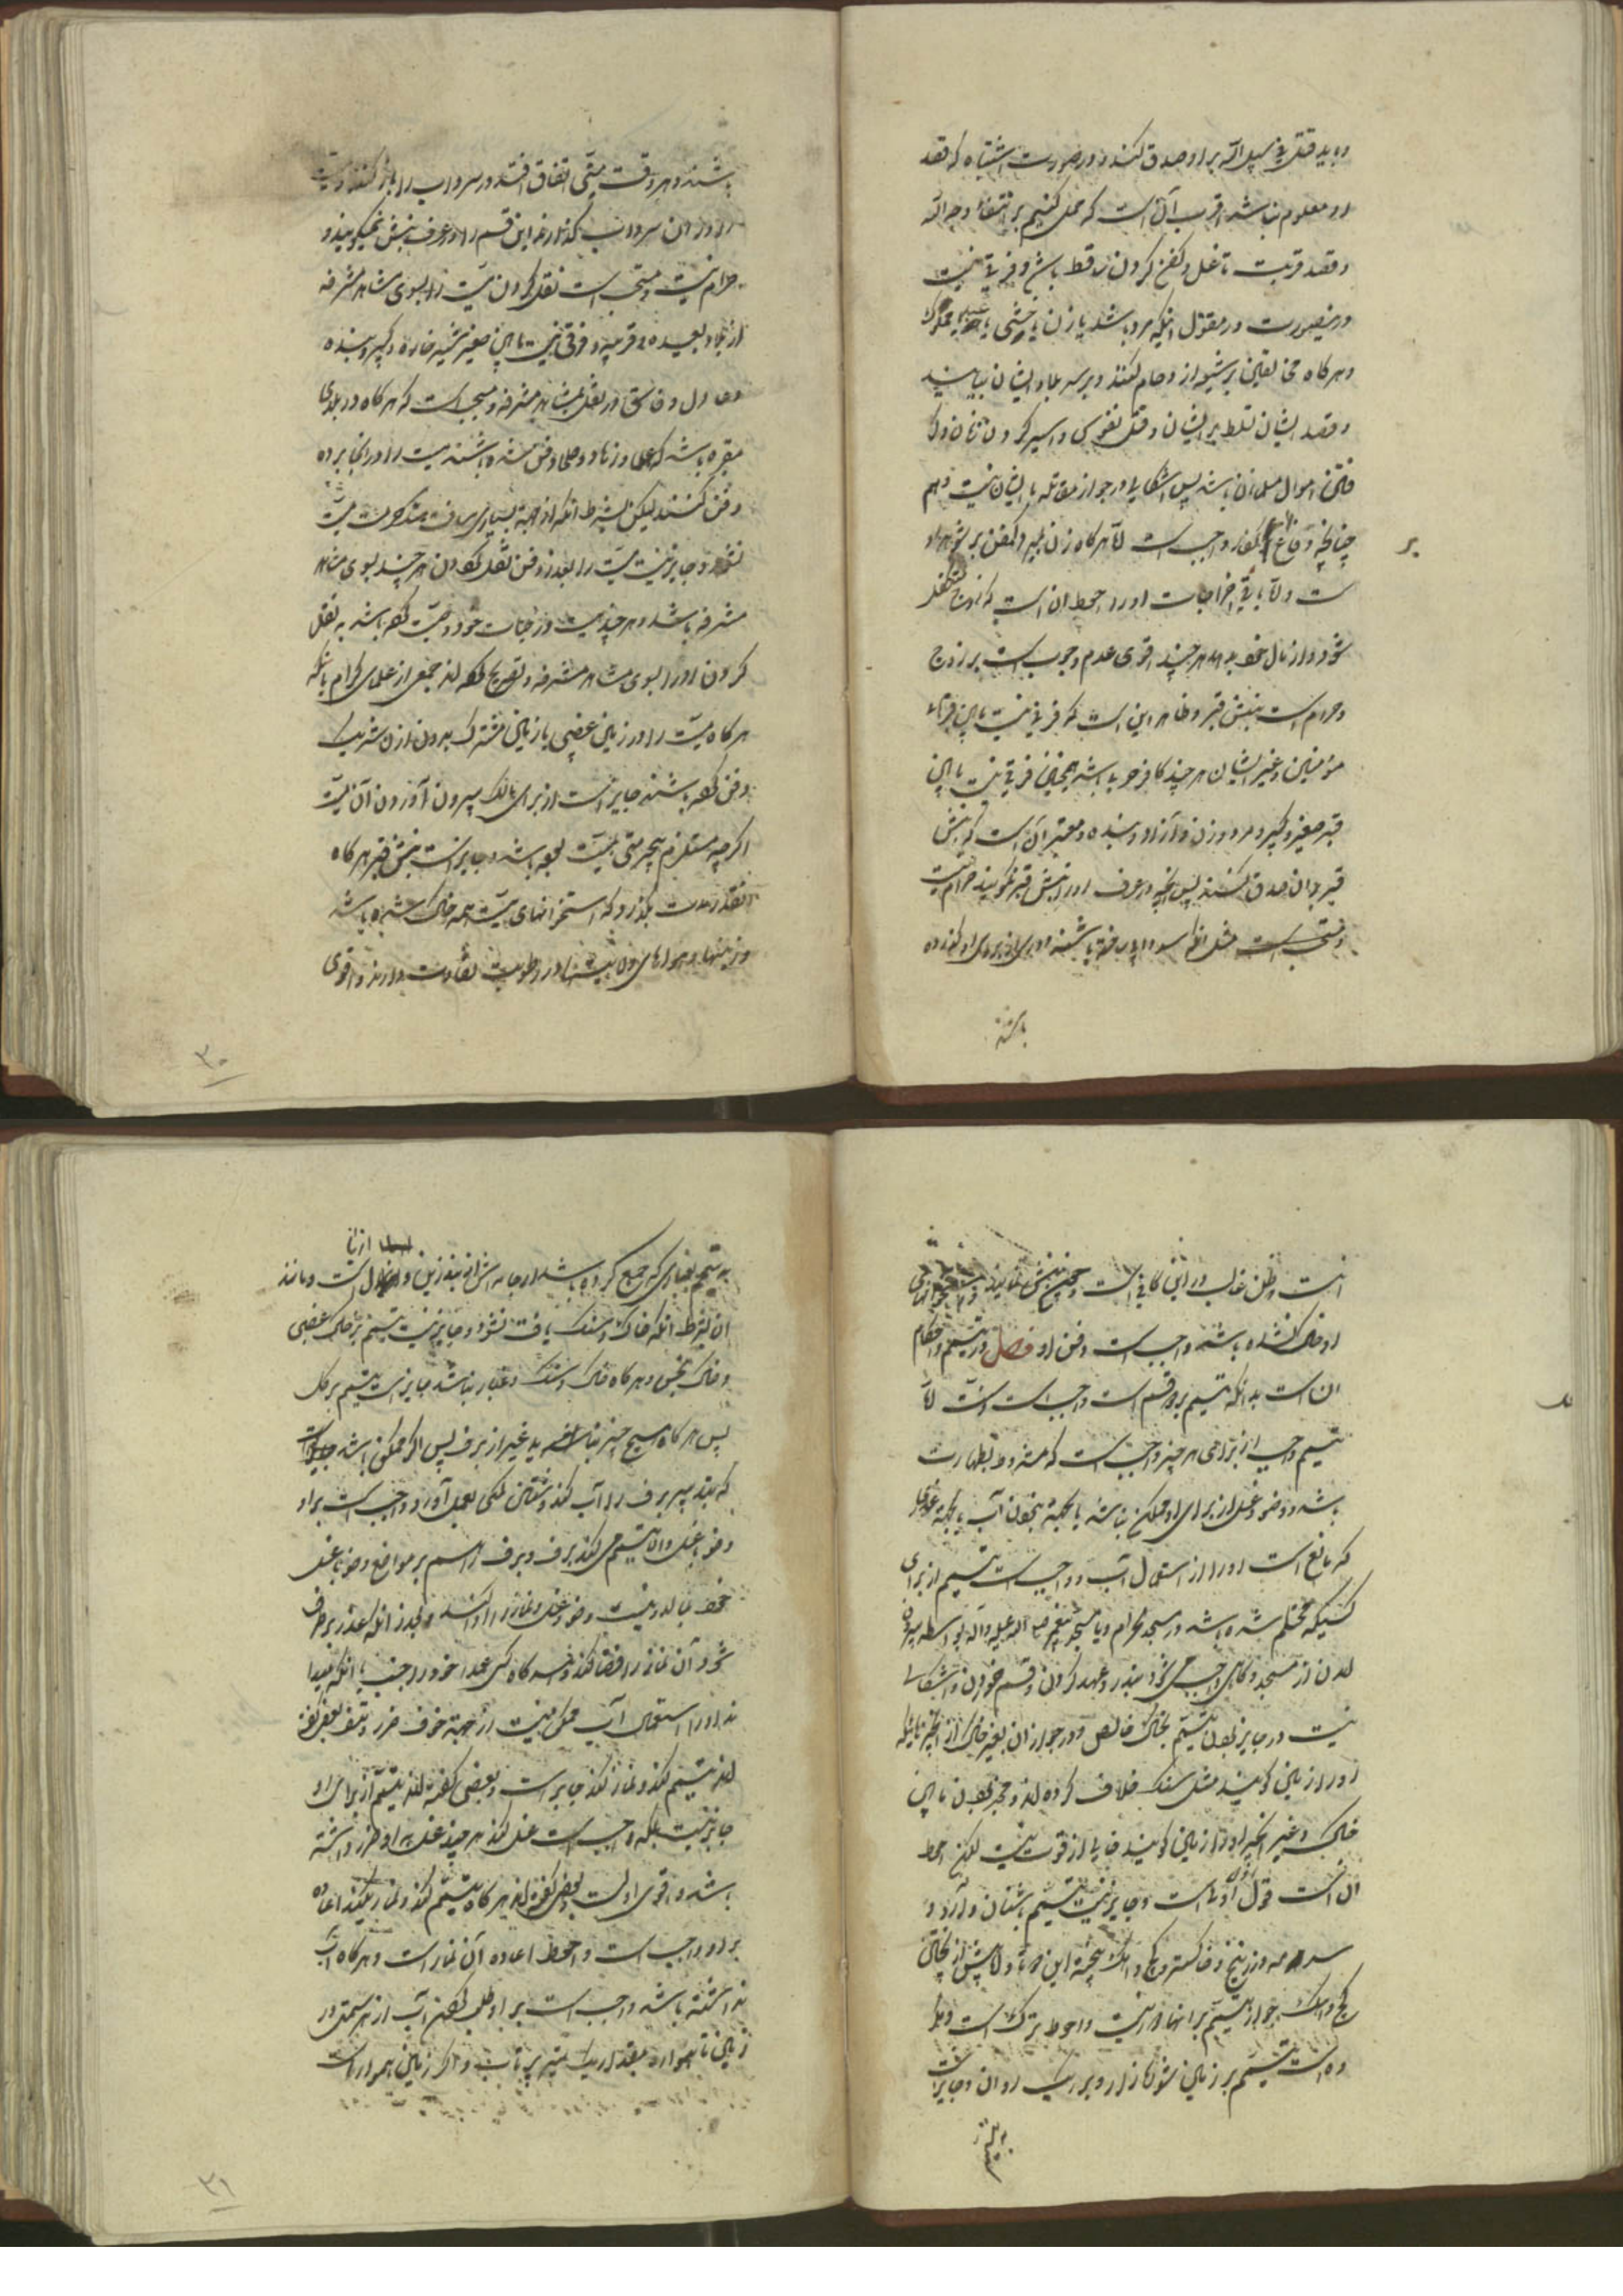 و باید قتل فی سبیل الله بر او صدق کند و در صورت اشتباه که قصد
او معلوم نباشد اقرب آن است که حمل کنیم بر ابتغاء وجه الله
و قصد قربت تا غسل و کفن کردن ساقط باشد و فرقی نیست
در صورت در مقتول اینکه مرد باشد یا زن یا مملوک
و هرگاه مخالفین بر شیعه از دحام کنند و بر سر بلاد ایشان بیایند
و قصد ایشان تسلط بر ایشان و قتل نفوس و اسیر کردن زنان و
اموال مسلمانان باشد پس اشکالی در جواز مقاتله با ایشان نیست
چنانچه دفاع کفار واجب است امّا هرگاه زن بمیرد کفن بر شوهر او
ست و امّا باقی اخراجات او را احوط ان است که زوج متکفل
شود و از مال هر چند اقوی عدم وجوب است بر زوج
و حرام است نبش قبر و ظاهر این است که فرقی نیست مابین قبر
مؤمنین و غیر ایشان هر چند کافر حربی باشد همچنین فرقی نیست مابین
قبر صغیر و کبیر و مرد و زن و آزاد و بنده و معتبر آن است که نبش
قبر بران صدق کند پس انچه در عرف او را نبش قبر نگویند حرام نیست
مثل انکه باشند و او را کذارده
باشند
باشند و هر وقت میّتی اتفاق افتد در سرداب را باز کنند و میّت
را در ان سرداب کذارند این قسم را در عرف نبش نمیکویند و
حرام نیست و مستحب است نقل کردن میّت را بسوی مشاهد مشرفه
از بلاد بعیده و قریبه و فرقی نیست مابین صغیر و کبیر و بنده
و عادل و فاسق در نقل بمشاهد مشرفه و مستحب است که هرگاه در بلدی
مقبره باشد که علما و زهاد و صلحا دفن شده باشند میّت را در انجا برده
دفن کنند لیکن بشرط انکه از جهة بسیاری مسافت هتک حرمت میّت
نشود و جایز نیست میّت را بعد از دفن نقل کردن هر چند بسوی مشاهد
مشرفه باشد و هر چند میّت در حیات خود وصیّت کرده باشد به نقل
کردن او را بسوی مشاهد مشرفه و تصریح کرده اند جمعی از علمای کرام بانکه
هرگاه میّت را در زمین غصبی یا زمین مشترک بدون اذن شریک
دفن کرده باشند جایز است از برای مالک بیرون آوردن آن میّت
اگر چه مستلزم بیحرمتی میّت بوده باشد و جایز است نبش قبر هرگاه
انقدر مدت بگذرد که استخوانهای میّت همه خاک شده باشد
و زمینها و هواهای ولایتها در رطوبت تفاوت دارند و اقوی
۳۰
انست و ظن غالب در این کافی است
او خاک نشده باشد واجب است دفن او فصل در تیمم و احکام
ان است بدانکه تیمم بر دو قسم است واجب است و سنّت امّا
تیمم واجب از برای هر چیز واجب است که مشروط بطهارت
باشد و وضو و غسل از برای او ممکن نباشد یا بجهة نبودن آب یا بجهة عذری
که مانع است او را از استعمال آب و واجب است تیمم از برای
کسیکه محتلم شده باشد در مسجد حرام و یا مسجد پیغمبر صلی الله علیه و آله بواسطه بیرون
امدن از مسجد و گاهی واجب می شود بنذر و عهد کردن و قسم خوردن و اشکالی
نیست در جایز بودن تیمم بخاک خالص و در جواز ان بغیر خاک از انچیزهائیکه
او را زمین گویند مثل سنک خلاف کرده اند و مخیر بودن مابین
خاک و غیر انچیز او را زمین گویند خالی از قوت نیست لکن احوط
ان است قول اول است و جایز نیست تیمم باشنان و آرد و
سرمه و زرنیخ و خاکستر و گچ و اهک پخته این و امّا پیش از پختن
گچ و اهک جواز تیمم بر انها دور نیست و احوط ترک است و مکروه
است تیمم بر زمین شوره زار و بر ریک روان و جایز است
به تیمم
به تیمم بغباری که جمع کرده باشد از جامه اش
ان بشرط انکه خاک و سنک یافت نشود و جایز نیست تیمم بر خاک غصبی
و خاک نجس و هرگاه خاک و سنک و غبار نباشد جایز است تیمم بر گل
پس هرگاه هیچ چیز نباشد غیر از برف پس اگر ممکن باشد
برف را آب کند واجب است بر او
وضو یا غسل و الا تیمم می کند ببرف و برف را بر مواضع وضو یا غسل
وضو و غسل و نماز را و بعد از انکه عذر برطرف
شود آن نماز را قضا کند و هرگاه کسی عمدا خود را جنب با انکه میدا
ند او را استعمال آب ممکن نیست از جهة خوف ضرر و تلف بعضی گفته
اند تیمم کند و نماز کند جایز است و بعضی گفته اند تیمم از برای او
جایز نیست بلکه واجب است غسل کند هر چند غسل به او ضرر داشته
باشد و اقوی اول است بعضی گفته اند هرگاه تیمم کند و نماز بکند اعاده
بر او واجب است و احوط اعاده آن نماز است و هرگاه آب
نداشته باشد واجب است بر او طلب کردن آب از هر سمتی در
زمین ناهمواره بمقدار یک تیر پرتاب و اگر زمین هموار است
۳۱